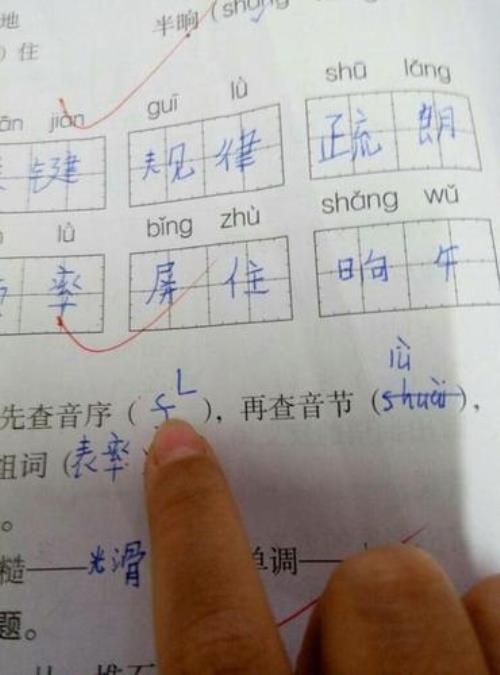 地 半晌（shǎng
）住
jiàn guī lǜ shū lǎng
键 规律 疏朗
lǜ bǐng zhù shǎng wǔ
率 屏住 晌午
lǜ
先查音序（L），再查音节（shuài），
组词（表率
。
糙——光滑 单调——
题。